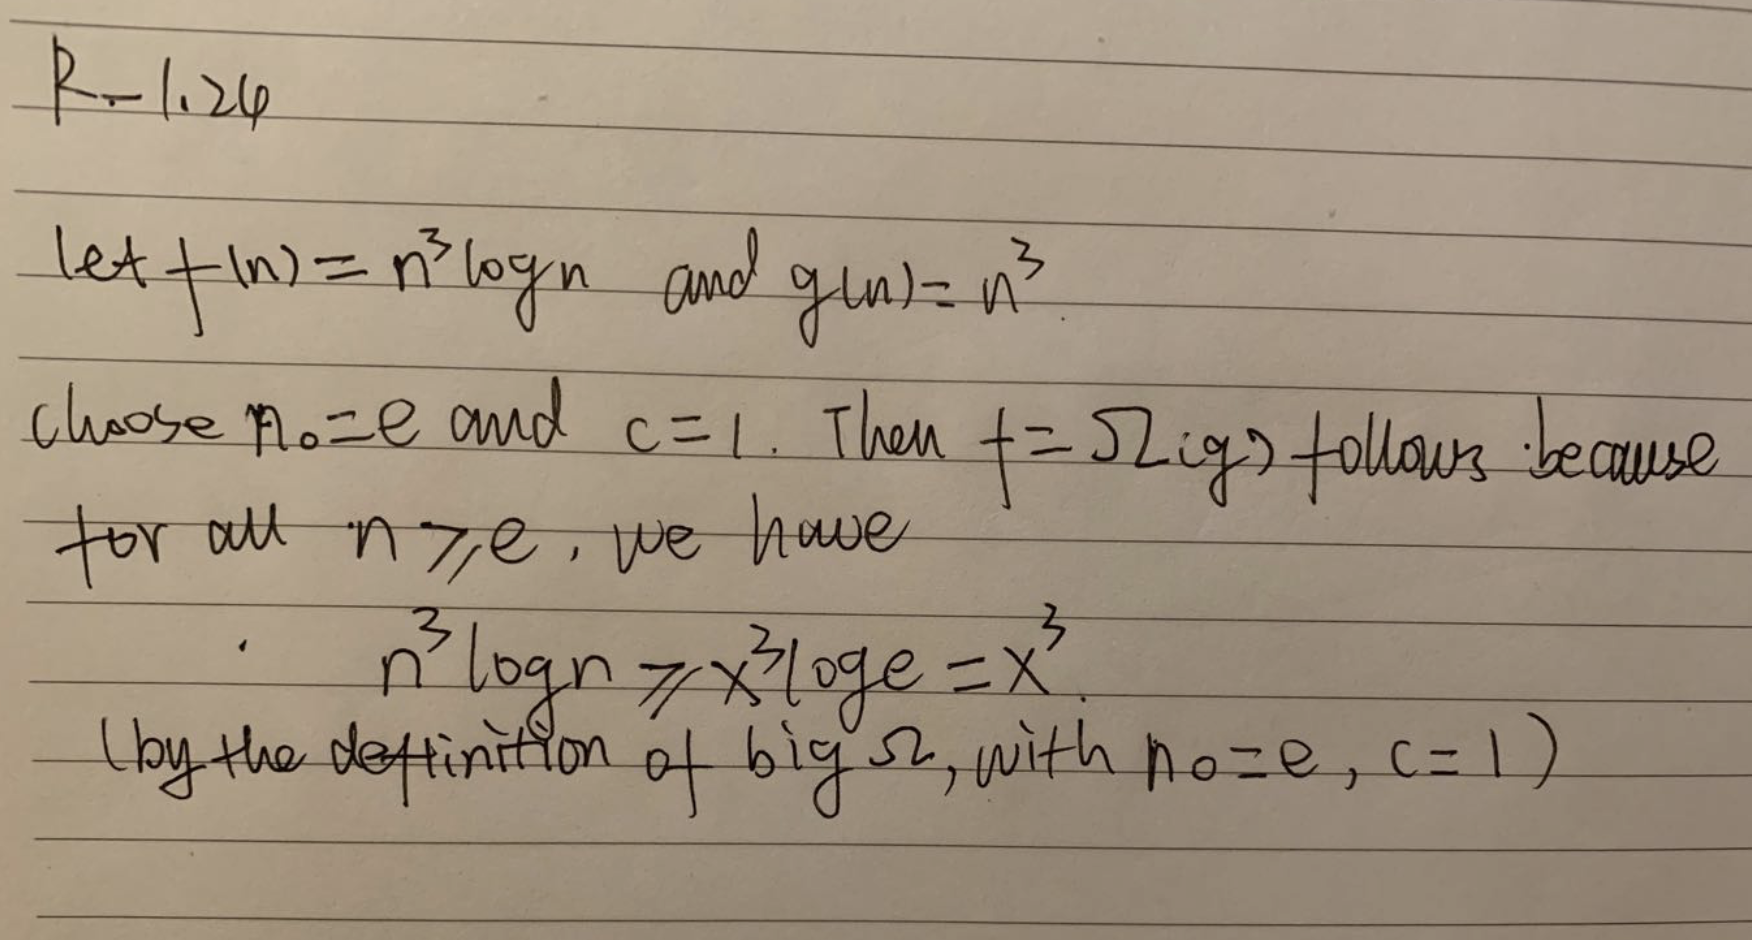 R-1.24
let f(n) = n³ log n and g(n) = n³.
choose n₀ = e and c = 1. Then f = Ω(g) follows because
for all n ≥ e, we have
n³ log n ≥ x³ log e = x³.
(by the deffinition of big Ω, with n₀ = e, c = 1)